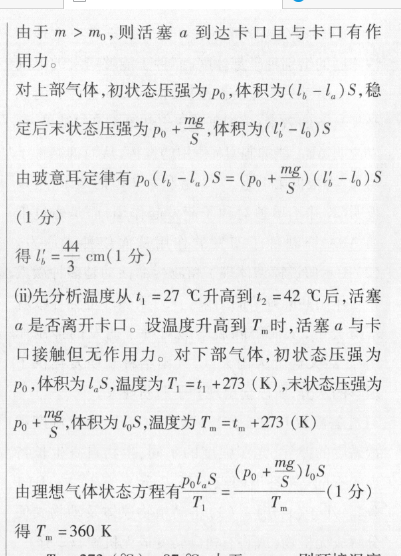 由于 m > m₀,则活塞 a 到达卡口且与卡口有作
用力。
对上部气体,初状态压强为 p₀,体积为(l_b − l_a)S,稳
定后末状态压强为 p₀ + mg/S,体积为(l′_b − l₀)S
由玻意耳定律有 p₀(l_b − l_a)S = (p₀ + mg/S)(l′_b − l₀)S
(1 分)
得 l′_b = 44/3 cm(1 分)
(ⅱ)先分析温度从 t₁ = 27 ℃升高到 t₂ = 42 ℃后,活塞
a 是否离开卡口。设温度升高到 T_m时,活塞 a 与卡
口接触但无作用力。对下部气体,初状态压强为
p₀,体积为 l_aS,温度为 T₁ = t₁ + 273 (K),末状态压强为
p₀ + mg/S,体积为 l₀S,温度为 T_m = t_m + 273 (K)
由理想气体状态方程有 p₀l_aS/T₁ = (p₀ + mg/S)l₀S/T_m (1 分)
得 T_m = 360 K